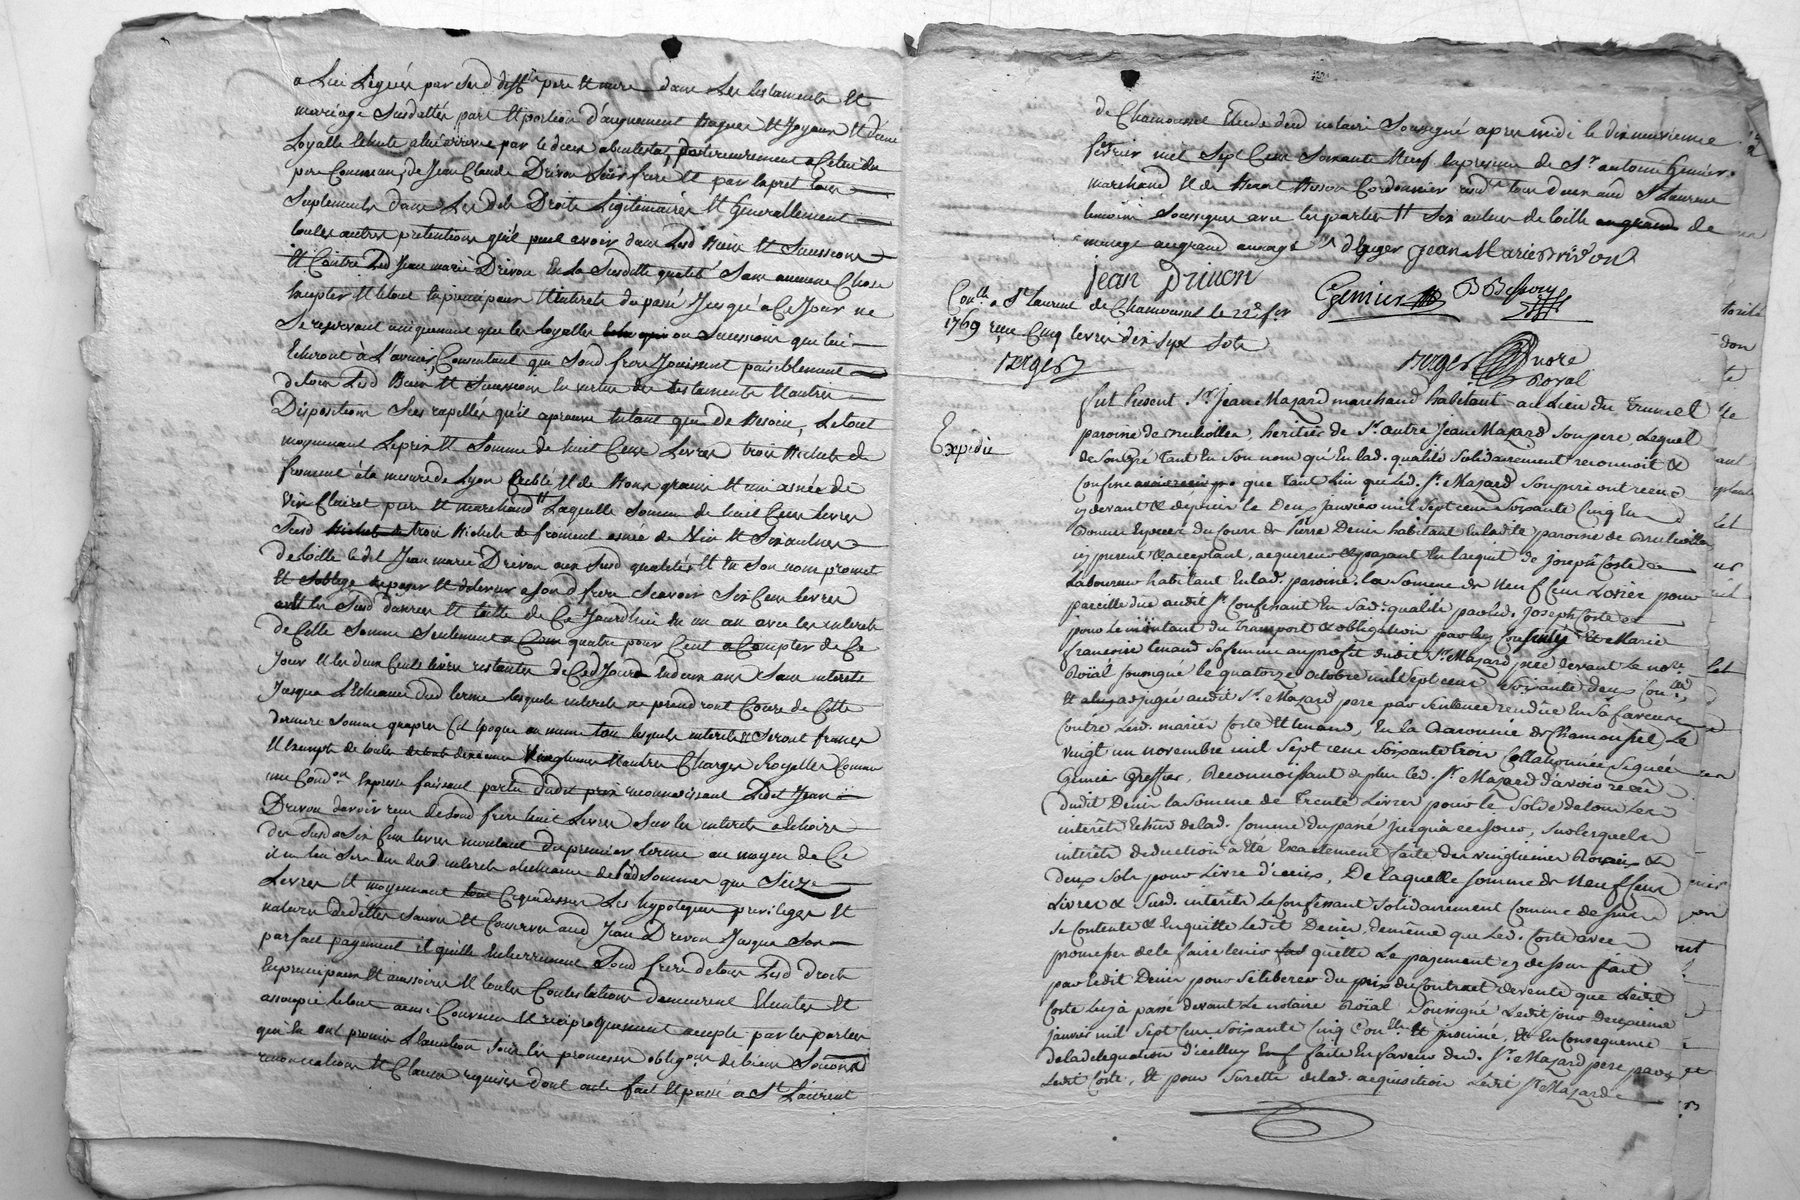 a Lui Leguée par sesd. père et mere dans Les testaments et
mariage Susdattés part et portion d'augment Bagues et Joyaux et d'une
Loyalle échute arrivée par le deces abintestat, postérieurement a Celui du
pere Commun, de Jean Claude Drivon leur frere et par Expret tous
Suplements dans Lesdits Droits Légitimaires et Generallement
toutes autres pretentions qu'il peut avoir dans Lesd Biens et Successions
et Contre Led Jean marie Drivon En La Susditte qualité Sans aucune Chose
Excepter et le tout En principaux et interets du passé Jusqu'a Ce Jour ne
Se reservant uniquement que les loyalles ou Successions que lui
Echeront à L'avenir, Consentant que Sond frere Jouissent paisiblement
de tous Lesd Biens et Successions En vertu des testaments et autres
Dispositions Sus rapellées qu'il aprouve En tant que de Besoin, Le tout
moyennant Le prix et Somme de huit Cent Livres trois Bichets de
froment à la mesure de Lyon Criblé et de Bons grains et une asnée de
Vin Clairet pur et marchand Laquelle Somme de huit Cent Livres
Susd trois Bichets de froment asnée de Vin et Six aulnes
de toille ledit Jean marie Drivon aux Susd qualités et En Son nom promet
et Soblige de payer et delivrer a Sond frere Scavoir Six Cent livres
et les Susd danrées et toille de Ce Jourdhui En un an avec les interets
de Cette Somme Seulement a quatre pour Cent a Compter de Ce
Jour et les deux Cents livres restantes de Ced Jour En deux ans Sans interets
Jusqua L'Echeance dud terme lesquels interets ne prendront Cours de Cette
derniere Somme qu'apres Cet Epoque
et Exempts de toutes Vingtiemes et autres Charges Royalles Comme
une Cond.on Expresse faisant partie dudit prix reconnoissant Ledit Jean
Drivon davoir reçu de Sond frere huit Livres Sur les interets a Echoir
des Susd Six Cent livres montant du premier terme au moyen de Ce
il ne lui Sera dû desd interets a l'echeance de lad Somme que Seize
Livres et moyennant Ce que dessus Les hypoteques privileges et
nature de dettes Sauvés et Conservés aud Jean Drivon Jusqua Son
parfait payement il quitte Entierement Sond frere de tous Lesd Droits
En principaux et accessoires et toutes Contestations demeurent Eteintes et
assoupies le tout ainsi Convenu et reciproquement accepté par les parties
qui En ont promis L'execution Sous les promesses oblig.ons de biens Soumis
renonciations et Clauses requises dont acte fait et passé a St Laurent
de Chamousset Etude dud notaire Soussigné apres midi le dix neuvieme
fevrier mil Sept Cent Soixante Neuf En presence de Sr antoine Genier
marchand et de Benoit Besson Cordonnier resid.ts tous deux aud St Laurent
temoins Soussignés avec les parties et Six aulnes de toille de
menage au grand aunage
Jean Marie Drivon
jean Drivon
Genier
B Besson
Con.llé a St Laurent de Chamousset le 22e fer
1769 reçu Cinq livres dix Sept Sols
Berger
Berger Nore
Royal
Expedié
fut Present Sr Jean Mazard marchand habitant au Lieu du Trunel
paroisse de Brullolles, héritier de Sr autre Jean Mazard Son pere, Lequel
de Son Gré Tant En Son nom qu'En lad. qualité Solidairement reconnoit &
Confesse que Tant Lui que Led. Sr Mazard Son pere ont reçu
cy devant & depuis le Deux Janvier mil Sept cent Soixante Cinq En
bonnes Especes du Cours de Pierre Denis habitant En ladte paroisse de Brullolles
cy present & acceptant, acquereur & payant En l'acquit de Joseph Coste
Laboureur habitant En lad. paroisse, la Somme de Neuf Cent Livres pour
pareille due audit Sr Confessant En Sad. qualité par led. Joseph Coste
pour le montant du Transport & obligation par luy Consenty Et Marie
francoise Lenard Sa femme au profit dudit Sr Mazard pere devant Le nore
Roïal Soussigné le quatorze octobre mil Sept cent Soixante deux Con.llé
Et adjugée audit Sr Mazard pere par Sentence rendüe En Sa faveur
Contre Lesd. mariés Coste Et Lenard, En La Baronnie de Chamousset Le
Vingt un novembre mil Sept cent Soixante trois Collationnée Signée
Genier Greffier, Reconnoissant de plus Led. Sr Mazard d'avoir reçû
dudit Denis la Somme de Trente Livres pour le Solde de tous Les
interêts Echus de lad. Somme du passé Jusqu'a ce jour, Sur lesquels
interêts deduction à Eté Exactement faite des vingtiemes Royaux &
deux Sols pour Livre d'iceux, De laquelle Somme de Neuf Cent
Livres & Susd. interêts Le Confessant Solidairement Comme dessus
Se Contente & En quitte Ledit Denis, de meme que Led. Coste avec
promesse de le faire tenir quitte Le payement cy dessus fait
par ledit Denis pour Se liberer du prix du Contract de vente que Ledit
Coste luy à passé devant Le notaire Roïal Soussigné Ledit Jour Deuxieme
Janvier mil Sept Cent Soixante Cinq Con.llé Et Insinué, Et En Consequence
de la delegation d'icelluy faite En faveur dud. Sr Mazard pere par
Ledit Coste, Et pour Surette de lad. acquisition Ledit Sr Mazard